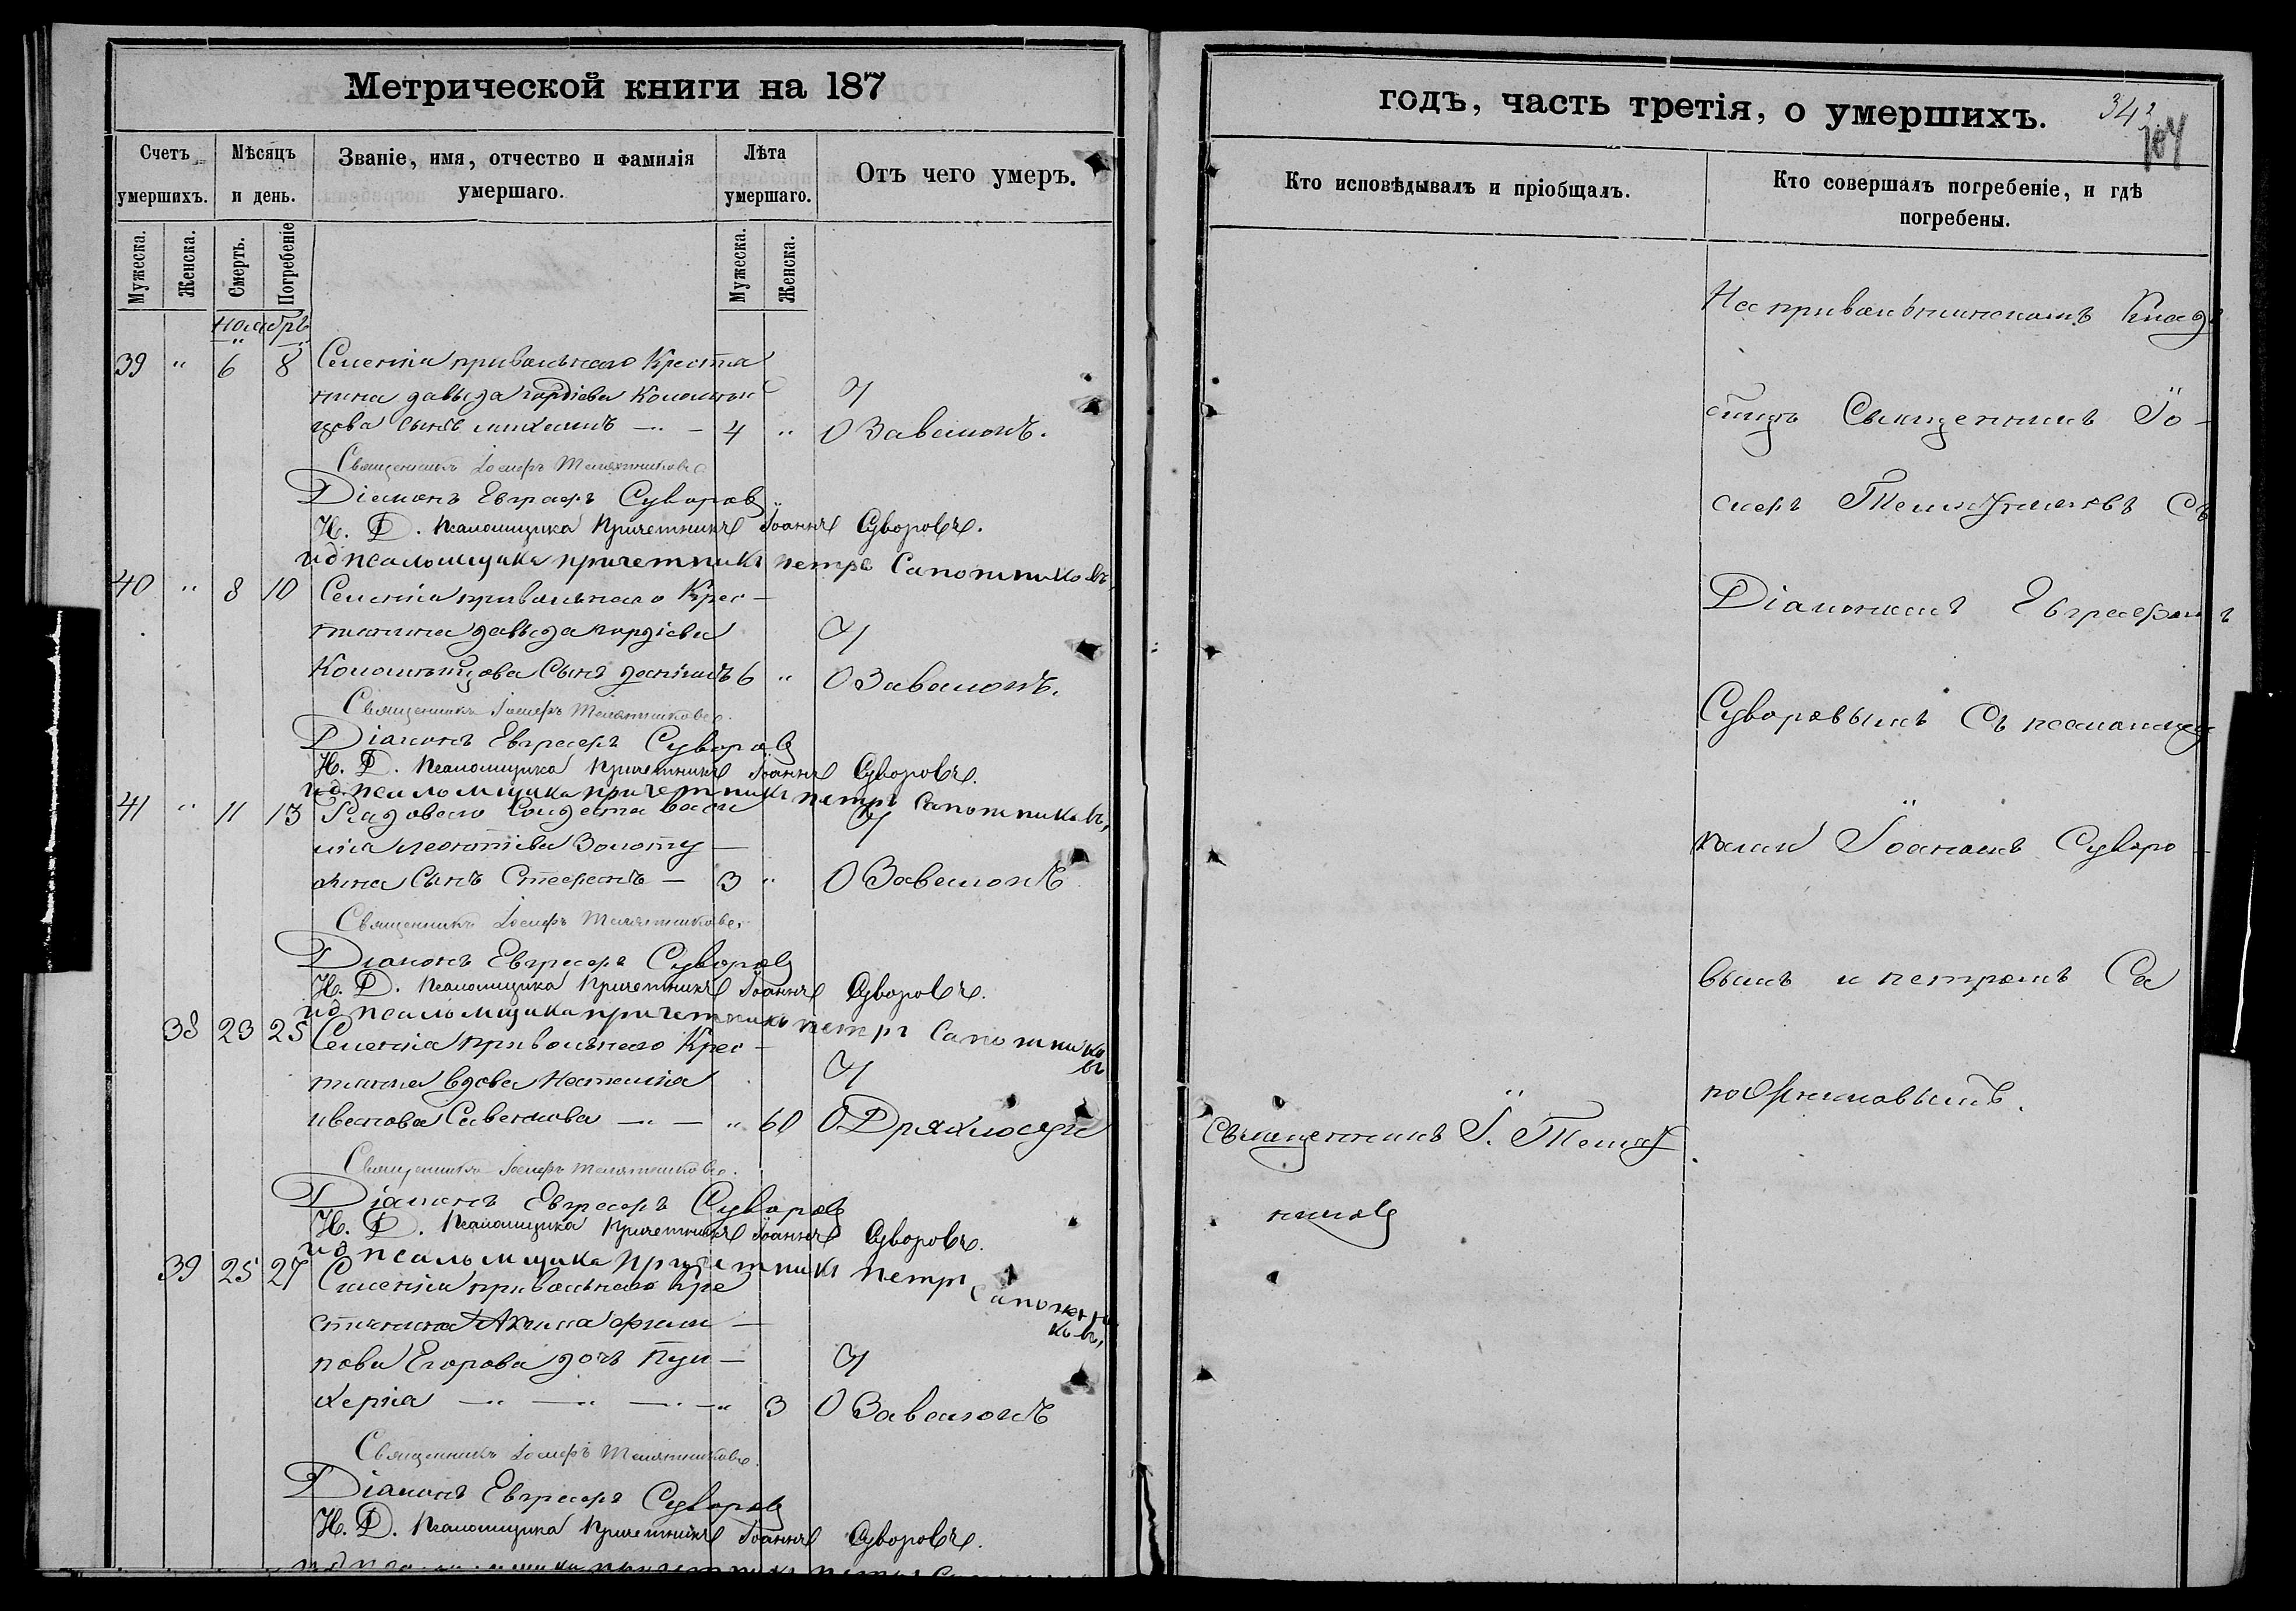 Метрической книги на 187
Счетъ умершихъ.
Мѣсяцъ и день.
Званіе, имя, отчество и фамилія умершаго.
Лѣта умершаго.
Отъ чего умеръ.
Мужеска.
Женска.
Смерть.
Погребеніе
Мужеска.
Женска.
Ноябрь
39 " 6 8 Селенія привольнаго Крестья
нина давыда гордіева Коломый
цова сынъ михаилъ — 4 " О Завалокъ.
Священникъ Іосифъ Телятниковъ
Діаконъ Евграфъ Суворовъ
И. Д. Псаломщика Причетникъ Іоаннъ Суворовъ.
ид псаломщика причетникъ петръ Сапожниковъ,
40 " 8 10 Селенія привольнаго Крес —
тьянина давыда гордіева
Сынъ 6 " О Завалокъ.
Священникъ Іосифъ Телятниковъ.
Діаконъ Евграфъ Суворовъ
И. Д. Псаломщика Причетникъ Іоаннъ Суворовъ.
ид псаломщика причетникъ петръ Сапожниковъ,
41 " 11 13 Рядоваго Солдата васи
лія леонтіева Золоту —
хина Сынъ Стефанъ — 3 " О Завалокъ
Священникъ Іосифъ Телятниковъ.
Діаконъ Евграфъ Суворовъ
И. Д. Псаломщика Причетникъ Іоаннъ Суворовъ.
ид псаломщика причетникъ петръ Сапожниковъ
38 23 25 Селенія привольнаго Крес —
тьянка вдова Наталія
иванова — " 60 О Дряхлости
Священникъ Іосифъ Телятниковъ.
Діаконъ Евграфъ Суворовъ
И. Д. Псаломщика Причетникъ Іоаннъ Суворовъ.
ид псаломщика Причетникъ петръ Сапожниковъ,
39 25 27 Селенія привольнаго Кре
стьянина филип —
пова Егорова дочь Пул —
херія — " 3 О Завалокъ
Священникъ Іосифъ Телятниковъ.
Діаконъ Евграфъ Суворовъ
И. Д. Псаломщика Причетникъ Іоаннъ Суворовъ.
годъ, часть третія, о умершихъ.
104
Кто исповѣдывалъ и пріобщалъ.
Кто совершалъ погребеніе, и гдѣ погребены.
Священникъ І. Телят
никовъ
На привольнинскомъ Клад
бищѣ Священникъ Іо-
сифъ Телятниковъ Съ
Діакономъ Евграфомъ
Суворовымъ Съ псаломщи
ками Іоаномъ Суворо —
вымъ и петромъ Са
пожниковымъ.